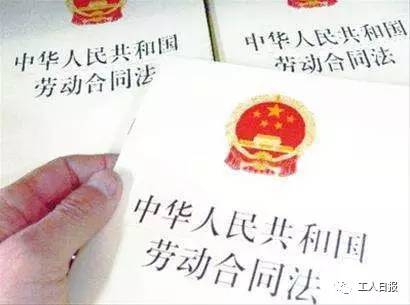 中华人民共和国
劳动合同法
中华人民共和国
劳动合同法
中华人民共和国
劳动合同法
工人日报